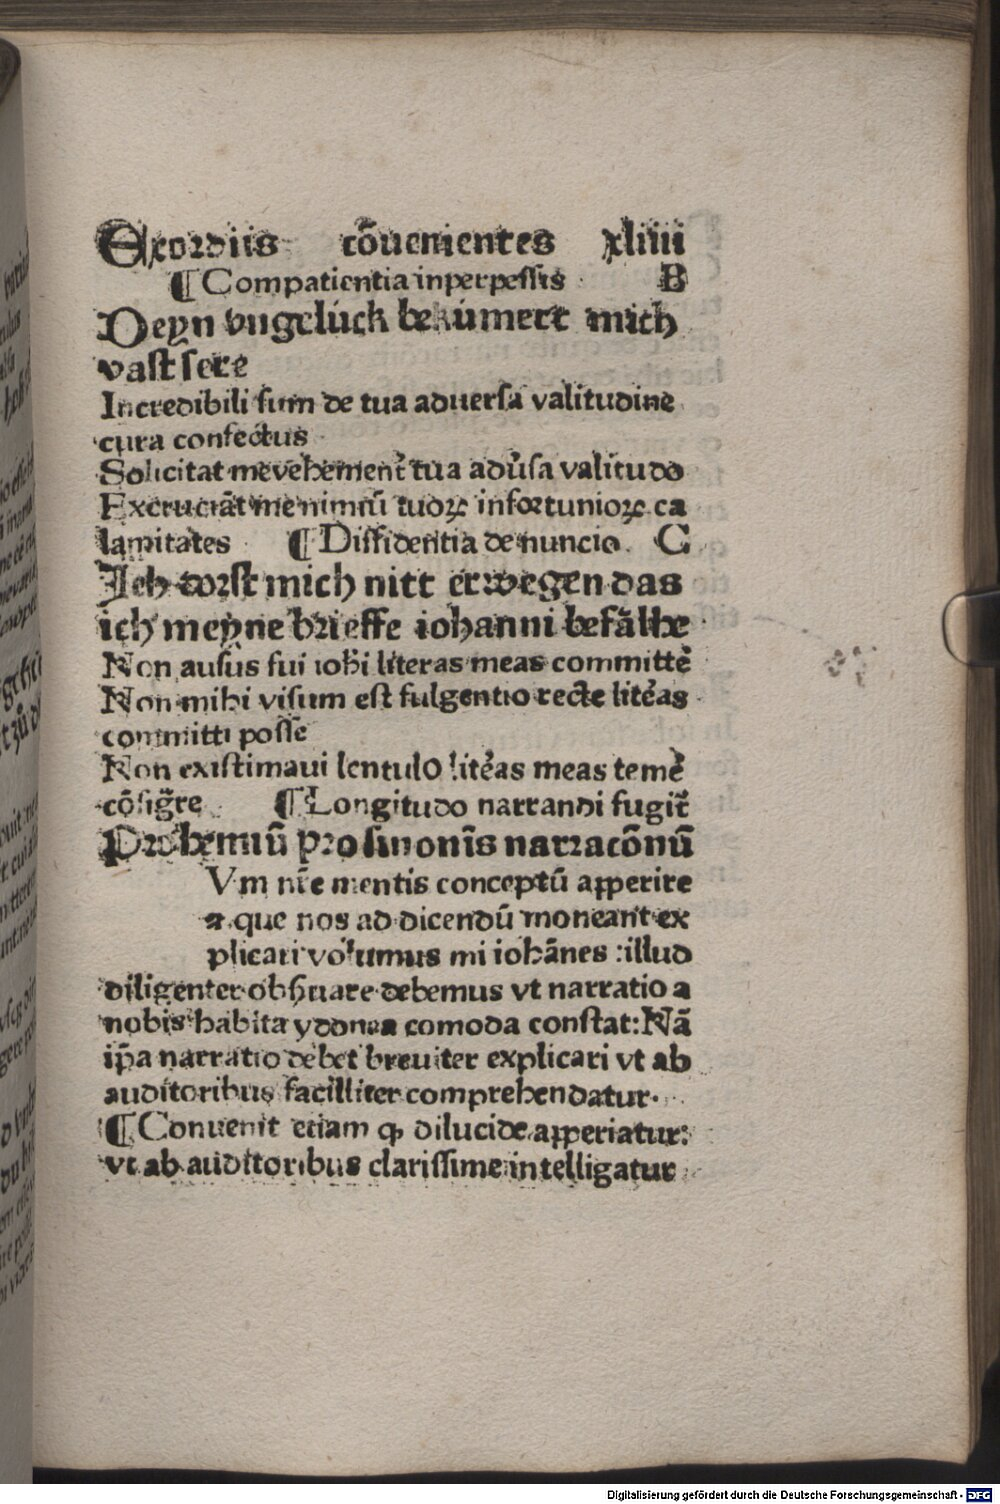 Exordiis cōuenientes xliiii
¶ Compatientia in perpessis B
Deyn vngelück bekümert mich
vast sere
Incredibili sum de tua aduersa valitudine
cura confectus
Solicitat me vehemēnt̄ tua adūsa valitudo
Excruciāt me nimiū tuoꝝ infortunioꝝ ca
lamitates ¶ Diffidentia de nuncio. C
Ich torst mich nitt erwegen das
ich meyne brieffe iohanni befålhe
Non ausus sui iohi literas meas committē
Non mihi visum est fulgentio recte litēas
committi posse
Non existimaui lentulo litēas meas temē
cōsigr̄re ¶ Longitudo narrandi fugit̄
Prohemiū pro sinonīs narracōnū
Vm nr̄e mentis conceptū apperire
a que nos ad dicendū moneant ex
plicari volumus mi iohānes :illud
diligenter obẜuare debemus vt narratio a
nobis habita ydonea comoda constat: Nā
ip̄a narratio debet breuiter explicari vt ab
auditoribus facilliter comprehendatur.
¶ Conuenit etiam ꝙ dilucide apperiatur:
vt ab auditoribus clarissime intelligatur
Digitalisierung gefördert durch die Deutsche Forschungsgemeinschaft - DFG